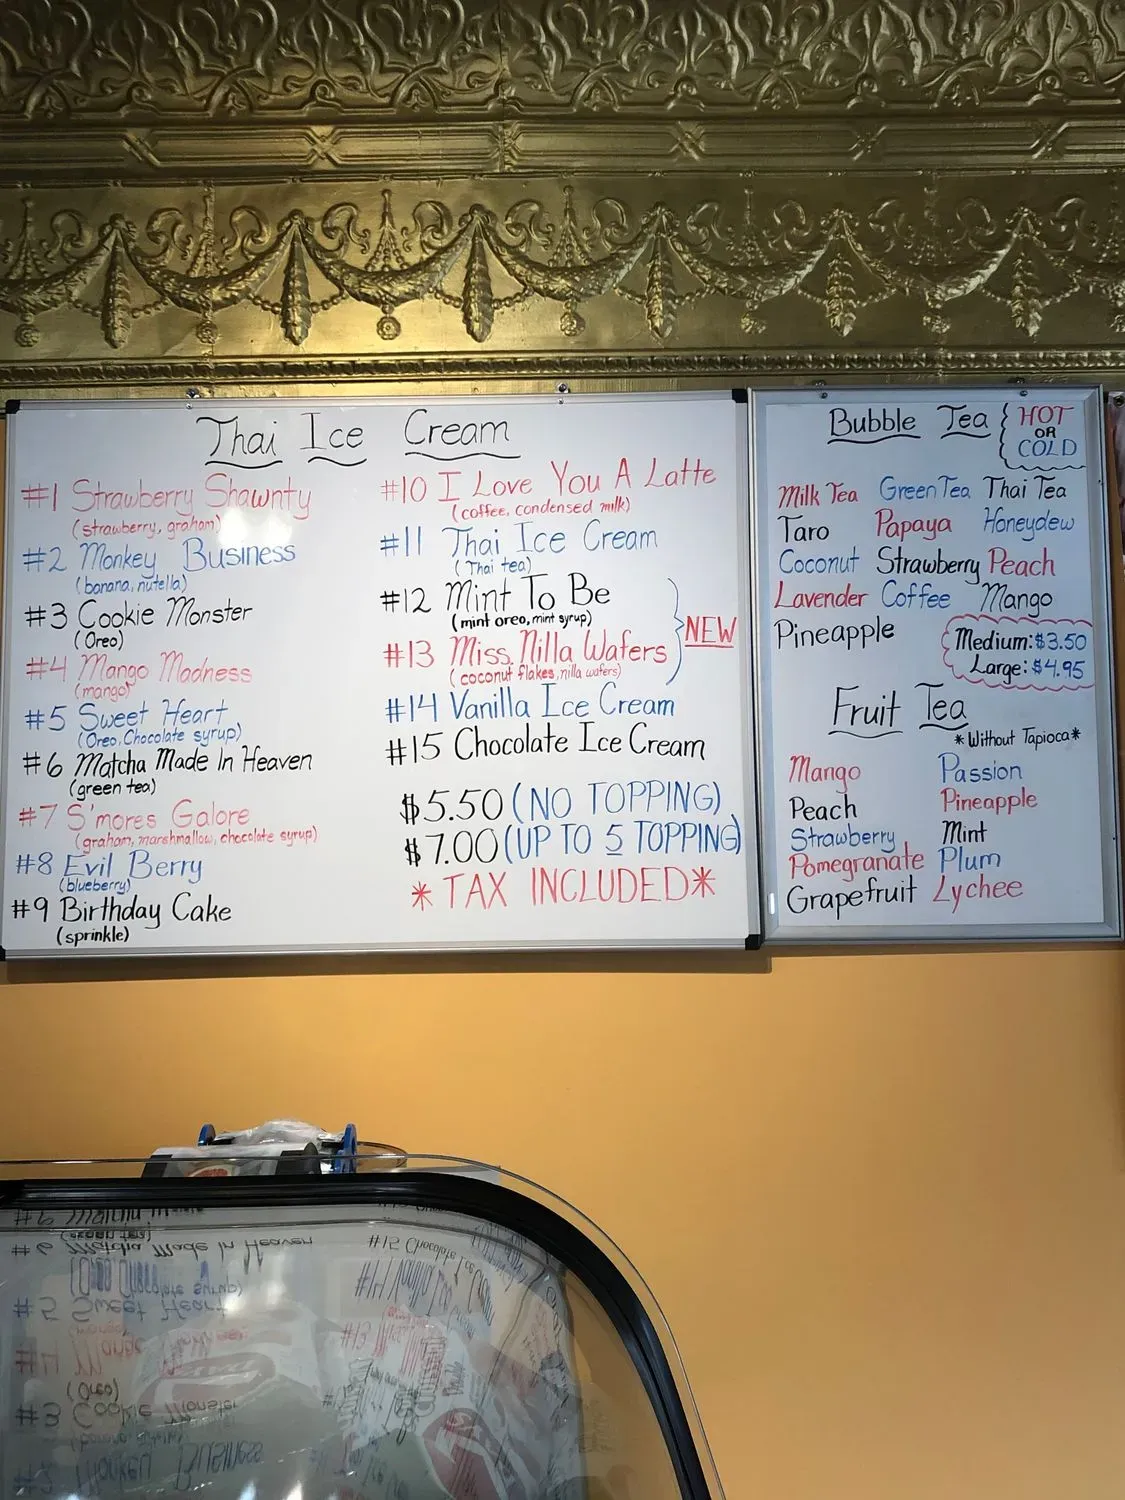 Thai Ice Cream
#1 Strawberry Shawnty
(strawberry, graham)
#2 Monkey Business
(banana, nutella)
#3 Cookie Monster
(Oreo)
#4 Mango Madness
(mango)
#5 Sweet Heart
(Oreo, Chocolate syrup)
#6 Matcha Made In Heaven
(green tea)
#7 S'mores Galore
(graham, marshmallow, chocolate syrup)
#8 Evil Berry
(blueberry)
#9 Birthday Cake
(sprinkle)
#10 I Love You A Latte
(coffee, condensed milk)
#11 Thai Ice Cream
(Thai tea)
#12 Mint To Be
(mint oreo, mint syrup)
#13 Miss. Nilla Wafers
(coconut flakes, nilla wafers)
NEW
#14 Vanilla Ice Cream
#15 Chocolate Ice Cream
$5.50 (NO TOPPING)
$7.00 (UP TO 5 TOPPING)
*TAX INCLUDED*
Bubble Tea
HOT
OR
COLD
Milk Tea Green Tea Thai Tea
Taro Papaya Honeydew
Coconut Strawberry Peach
Lavender Coffee Mango
Pineapple
Medium: $3.50
Large: $4.95
Fruit Tea
*Without Tapioca*
Mango Passion
Peach Pineapple
Strawberry Mint
Pomegranate Plum
Grapefruit Lychee